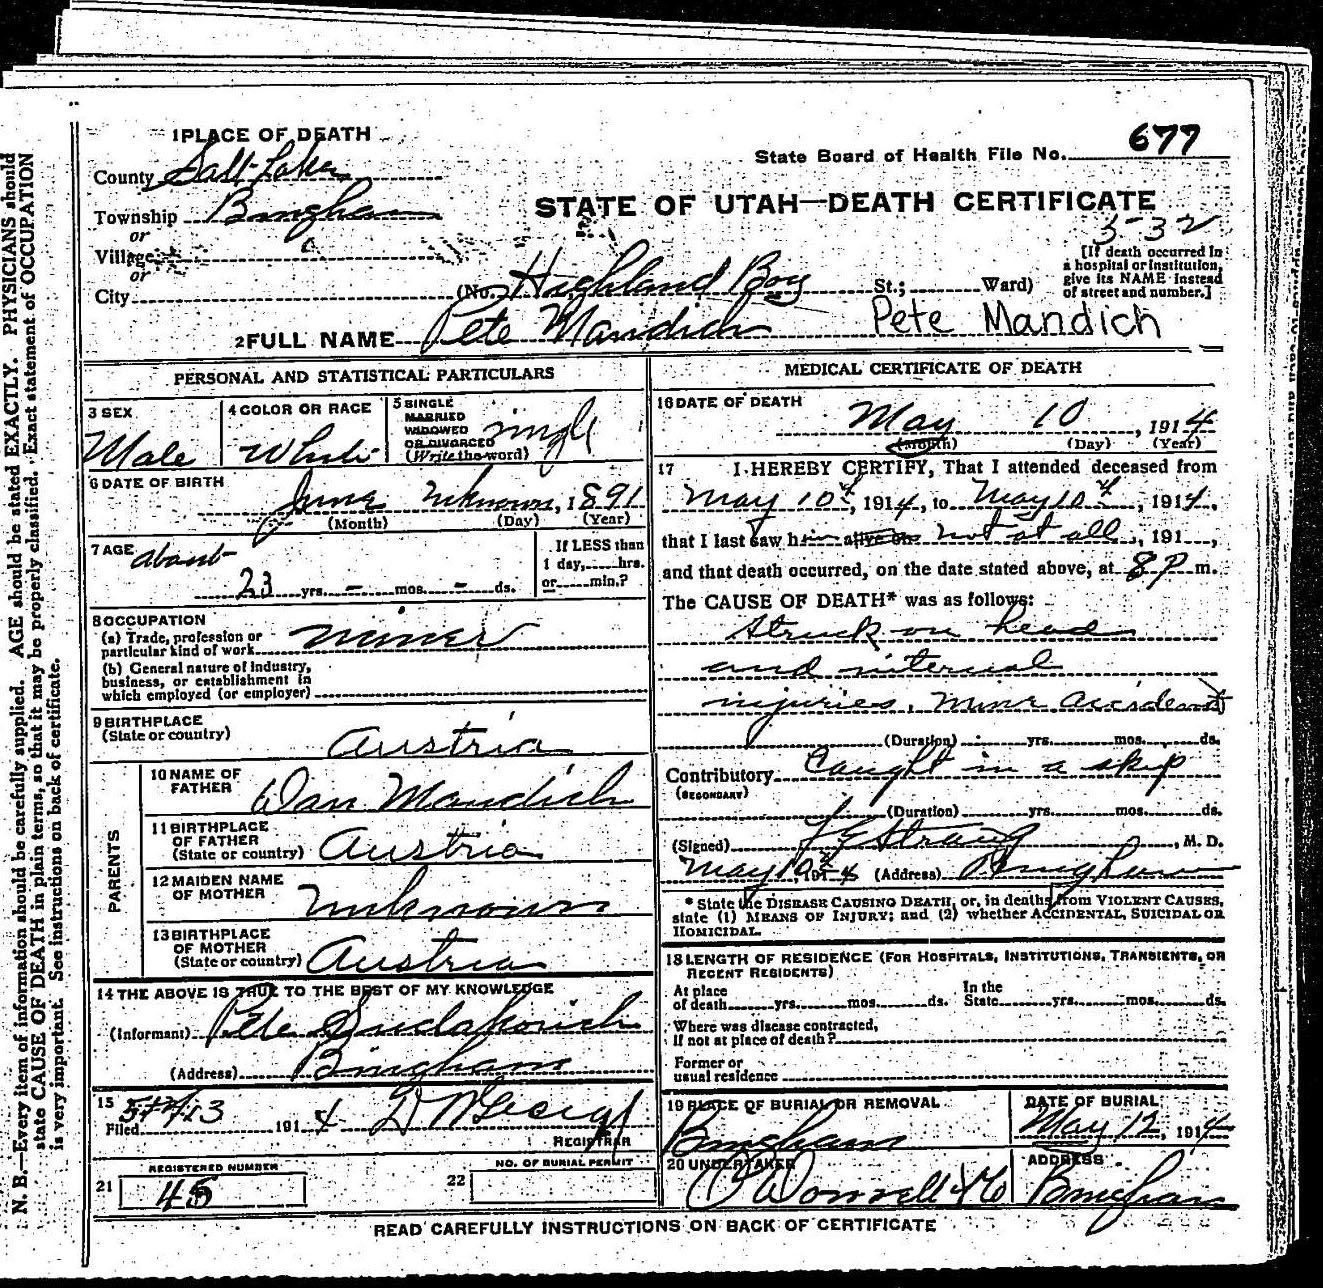 1 PLACE OF DEATH
State Board of Health File No. 677
County Salt Lake
Township Bingham
or
Village
or
City
STATE OF UTAH—DEATH CERTIFICATE
5-32
(No. Highland Boy St.; Ward)
[If death occurred in
a hospital or institution,
give its NAME instead
of street and number.]
2 FULL NAME Pete Mandich Pete Mandich
PERSONAL AND STATISTICAL PARTICULARS
3 SEX
Male
4 COLOR OR RACE
White
5 SINGLE
MARRIED
WIDOWED
OR DIVORCED
(Write the word)
single
6 DATE OF BIRTH
June unknown, 1891
(Month) (Day) (Year)
7 AGE about
23 yrs. - mos. - ds.
If LESS than
1 day, hrs.
or min.?
8 OCCUPATION
(a) Trade, profession or
particular kind of work miner
(b) General nature of industry,
business, or establishment in
which employed (or employer)
9 BIRTHPLACE
(State or country)
Austria
PARENTS
10 NAME OF
FATHER
Dan Mandich
11 BIRTHPLACE
OF FATHER
(State or country) Austria
12 MAIDEN NAME
OF MOTHER
unknown
13 BIRTHPLACE
OF MOTHER
(State or country) Austria
14 THE ABOVE IS TRUE TO THE BEST OF MY KNOWLEDGE
(Informant) Pete
(Address) Bingham
15
Filed 191 4
REGISTRAR
REGISTERED NUMBER
21 45
NO. OF BURIAL PERMIT
22
MEDICAL CERTIFICATE OF DEATH
16 DATE OF DEATH
May 10, 1914
(Month) (Day) (Year)
17 I HEREBY CERTIFY, That I attended deceased from
May 10th, 1914, to May 10th, 1914,
that I last saw him alive on not at all, 191 ,
and that death occurred, on the date stated above, at 8 P m.
The CAUSE OF DEATH* was as follows:
Struck on head
and internal
injuries. Mine accident
(Duration) yrs. mos. ds.
Contributory Caught in a skip
(SECONDARY)
(Duration) yrs. mos. ds.
(Signed) , M. D.
May 1914 (Address) Bingham
* State the DISEASE CAUSING DEATH, or, in deaths from VIOLENT CAUSES,
state (1) MEANS OF INJURY; and (2) whether ACCIDENTAL, SUICIDAL OR
HOMICIDAL.
18 LENGTH OF RESIDENCE (FOR HOSPITALS, INSTITUTIONS, TRANSIENTS, OR
RECENT RESIDENTS)
At place
of death yrs. mos. ds.
In the
State yrs. mos. ds.
Where was disease contracted,
if not at place of death?
Former or
usual residence
19 PLACE OF BURIAL OR REMOVAL
Bingham
DATE OF BURIAL
May 12, 1914
20 UNDERTAKER
ADDRESS
Bingham
READ CAREFULLY INSTRUCTIONS ON BACK OF CERTIFICATE
N. B.—Every item of information should be carefully supplied. AGE should be stated EXACTLY. PHYSICIANS should
state CAUSE OF DEATH in plain terms, so that it may be properly classified. Exact statement of OCCUPATION
is very important. See instructions on back of certificate.